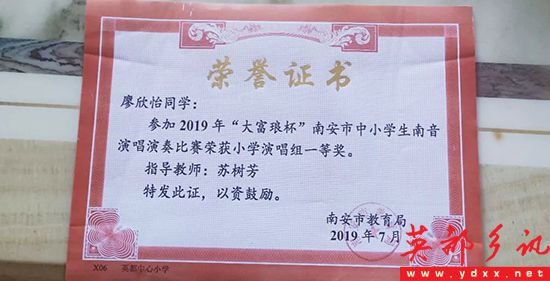 荣誉证书
廖欣怡同学：
参加2019年“大富琅杯”南安市中小学生南音
演唱演奏比赛荣获小学演唱组一等奖。
指导教师：苏树芳
特发此证，以资鼓励。
南安市教育局
2019年7月
X06 英都中心小学
英都乡讯
www.ydxx.net